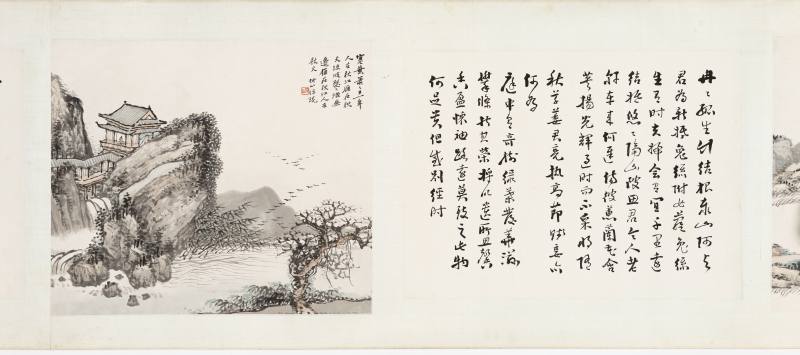 冉〻孤生竹結根泰山阿與
君為新婚兔絲附女蘿兔絲
生有時夫婦會有宜千里遠
結婚悠〻隔山陂思君令人老
軒車來何遲傷彼蕙蘭花含
英揚光輝過時而不采將隨
秋草萎君亮執高節賤妾亦
何為
庭中有奇樹綠葉發華滋
攀條折其榮將以遺所思馨
香盈懷袖路遠莫致之此物
何足貴但感別經時
人在秋江雁在秋